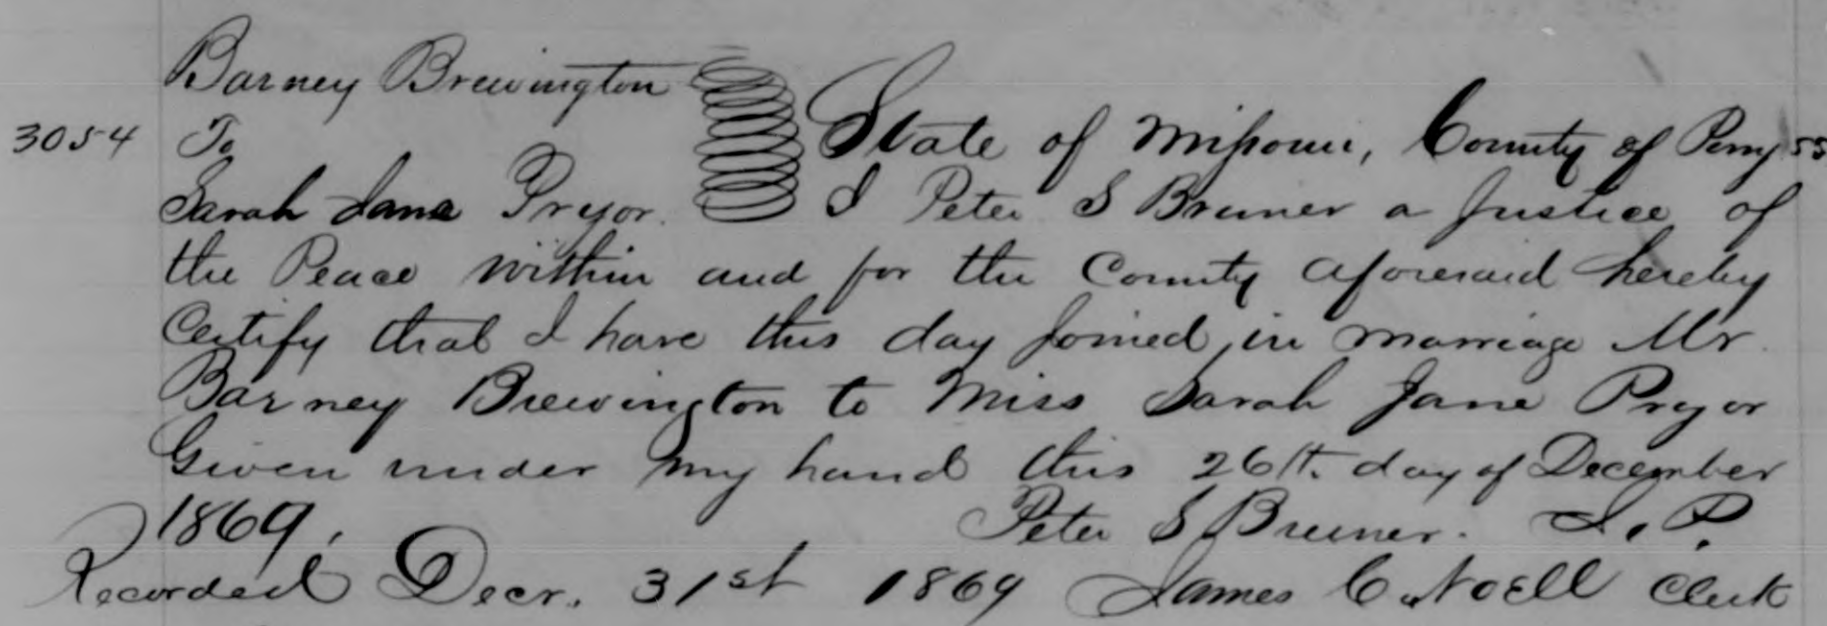 Barney Brewington
3054 To State of Missouri, County of Perry ss
Sarah Jane Pryor. I Peter S Bruner a Justice of
the Peace within and for the County aforesaid hereby
Certify that I have this day joined in marriage Mr.
Barney Brewington to Miss Sarah Jane Pryor
Given under my hand this 26th day of December
1869. Peter S Bruner. J. P.
Recorded Decr. 31st 1869 James C. Noell Clerk